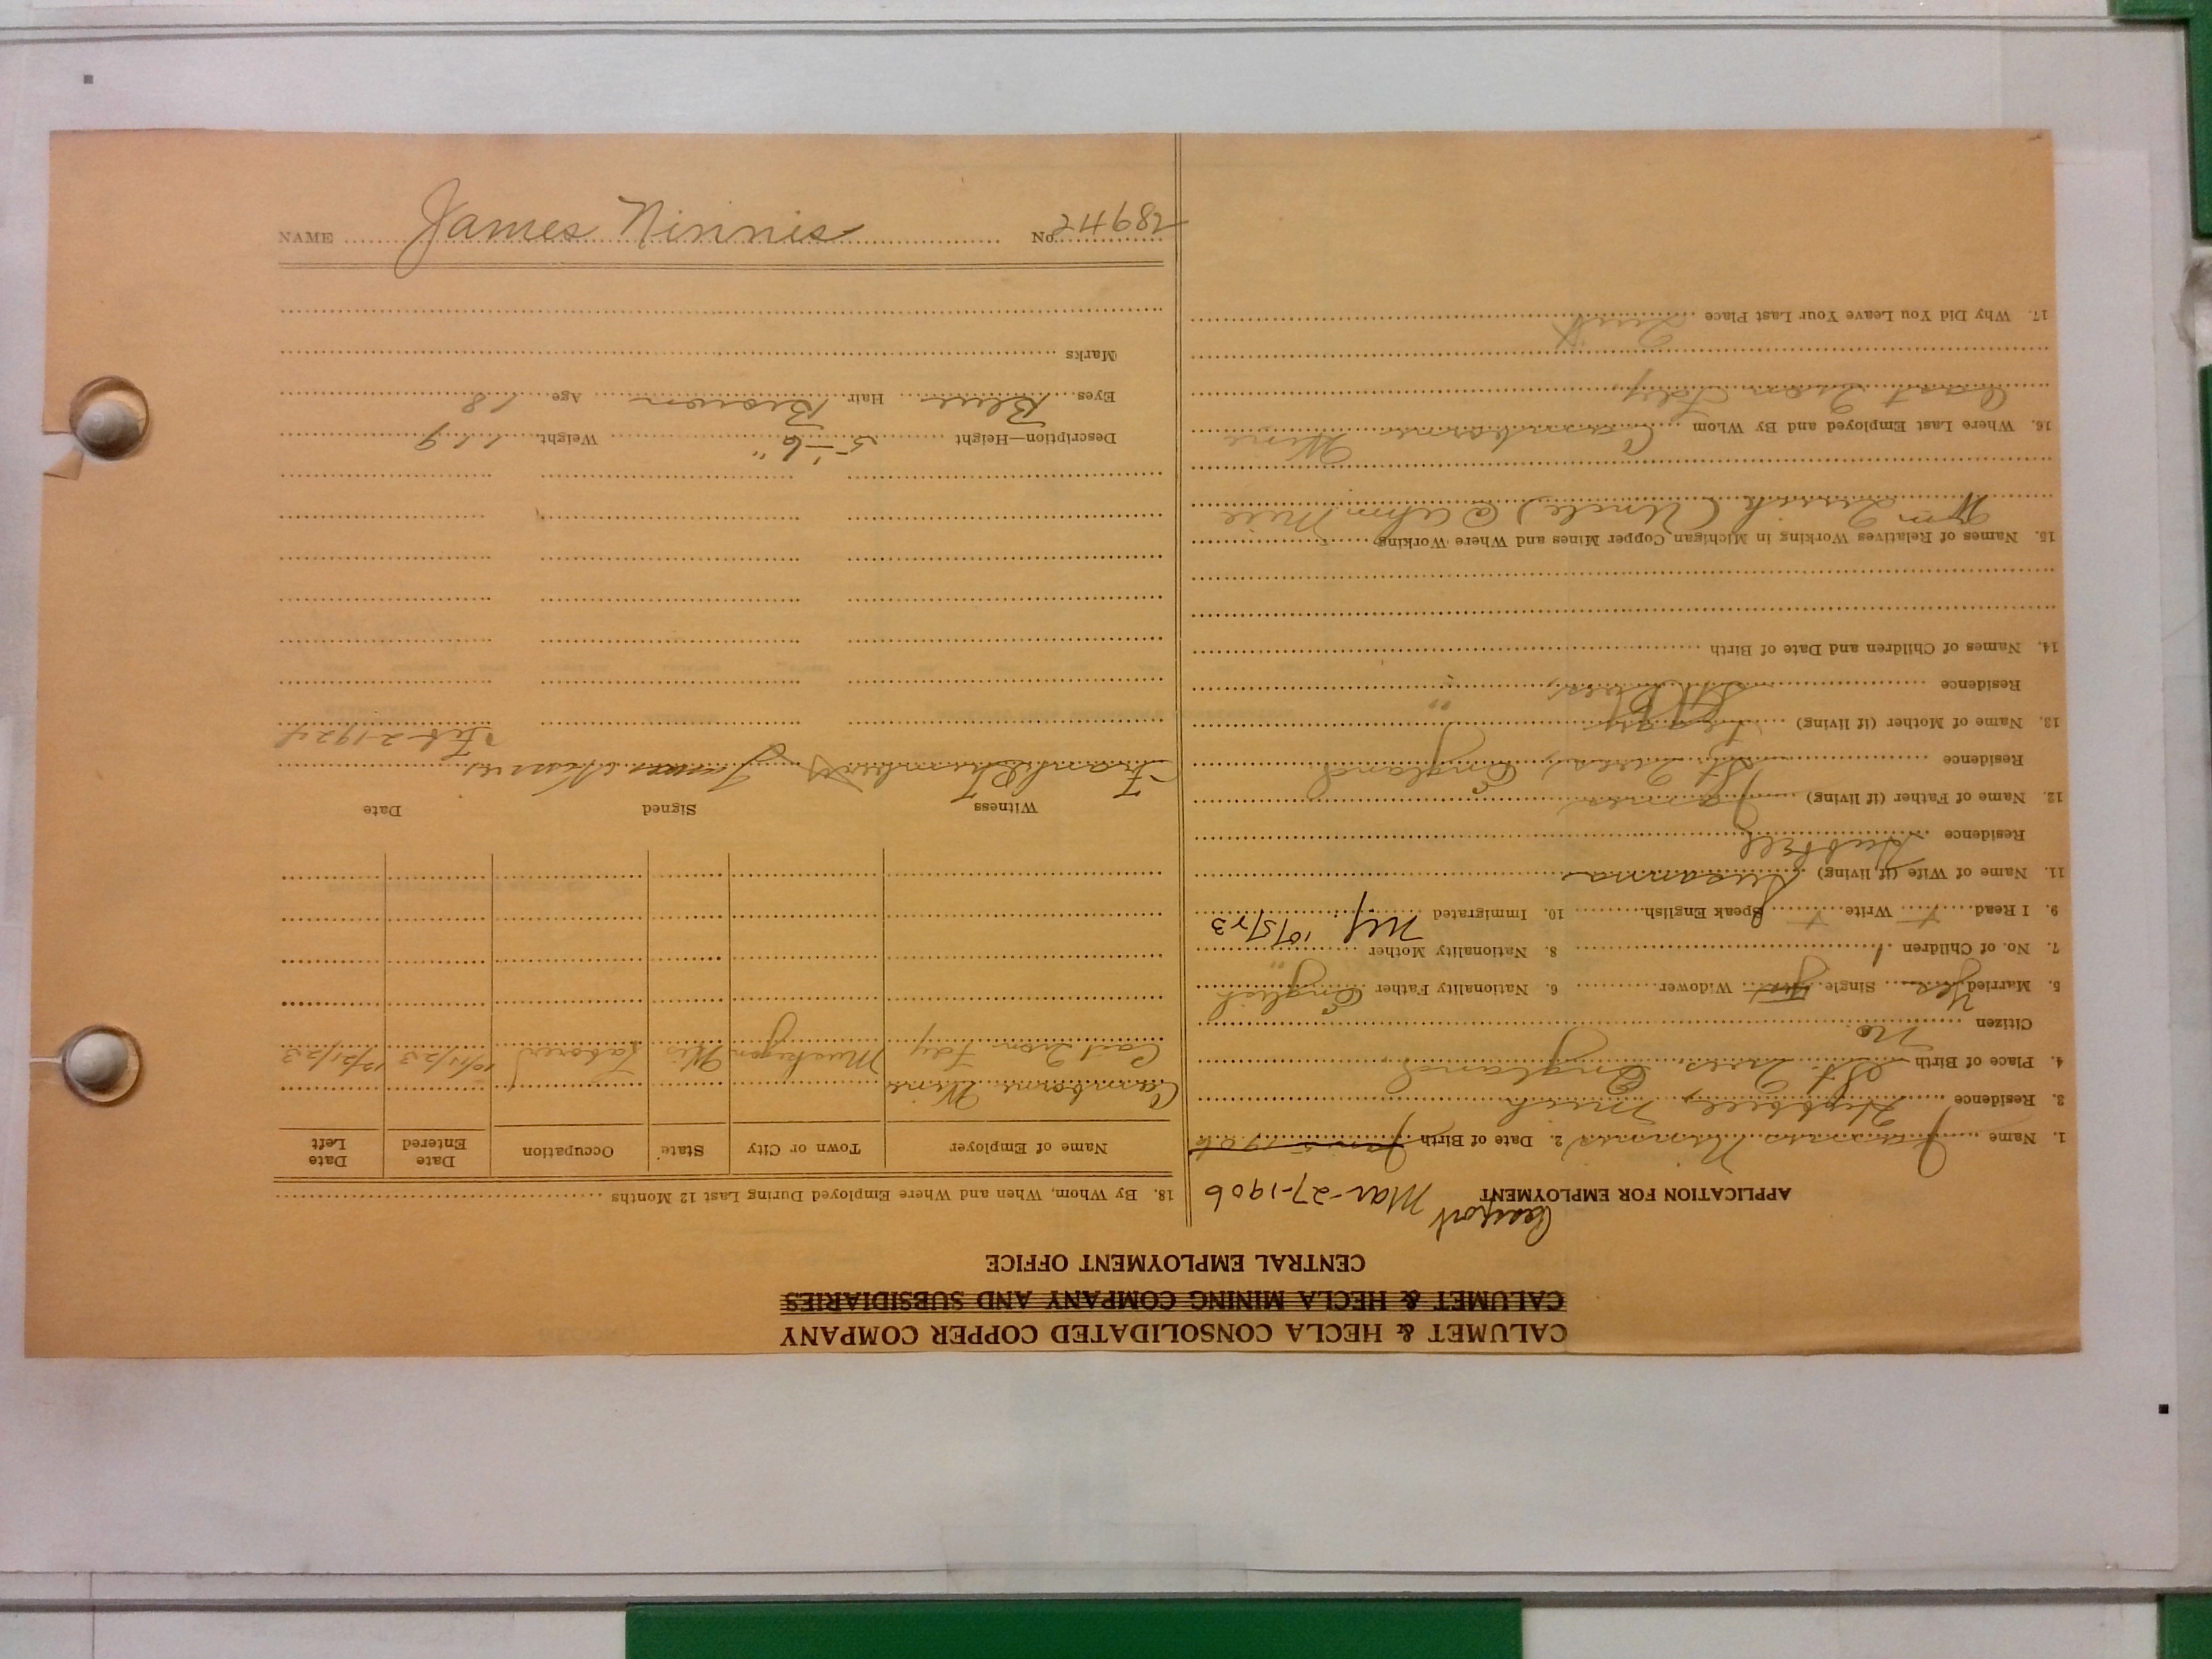 CALUMET & HECLA CONSOLIDATED COPPER COMPANY
CALUMET & HECLA MINING COMPANY AND SUBSIDIARIES
CENTRAL EMPLOYMENT OFFICE
APPLICATION FOR EMPLOYMENT Mar-27-1906
1. Name James Ninnis 2. Date of Birth
3. Residence Hubbell, Mich
4. Place of Birth St. Ives, England
Citizen No.
5. Married Yes Single Widower 6. Nationality Father English
7. No. of Children 1 8. Nationality Mother "
9. I Read Write Speak English 10. Immigrated
11. Name of Wife (if living) Susanna
Residence Hubbell
12. Name of Father (if living) James
Residence St. Ives, England
13. Name of Mother (if living)
Residence
14. Names of Children and Date of Birth
15. Names of Relatives Working in Michigan Copper Mines and Where Working
Wm (Uncle) @
16. Where Last Employed and By Whom Camborne Wire
Cast Iron Fdy
17. Why Did You Leave Your Last Place Quit
18. By Whom, When and Where Employed During Last 12 Months
Name of Employer Town or City State Occupation Date Entered Date Left
Camborne Wire
Cast Iron Fdy Muskegon Laborer
Witness Signed Date
Frank James Ninnis Feb-2-1924
Description—Height 5'-6" Weight 119
Eyes Blue Hair Brown Age 18
Marks
NAME James Ninnis No. 24689